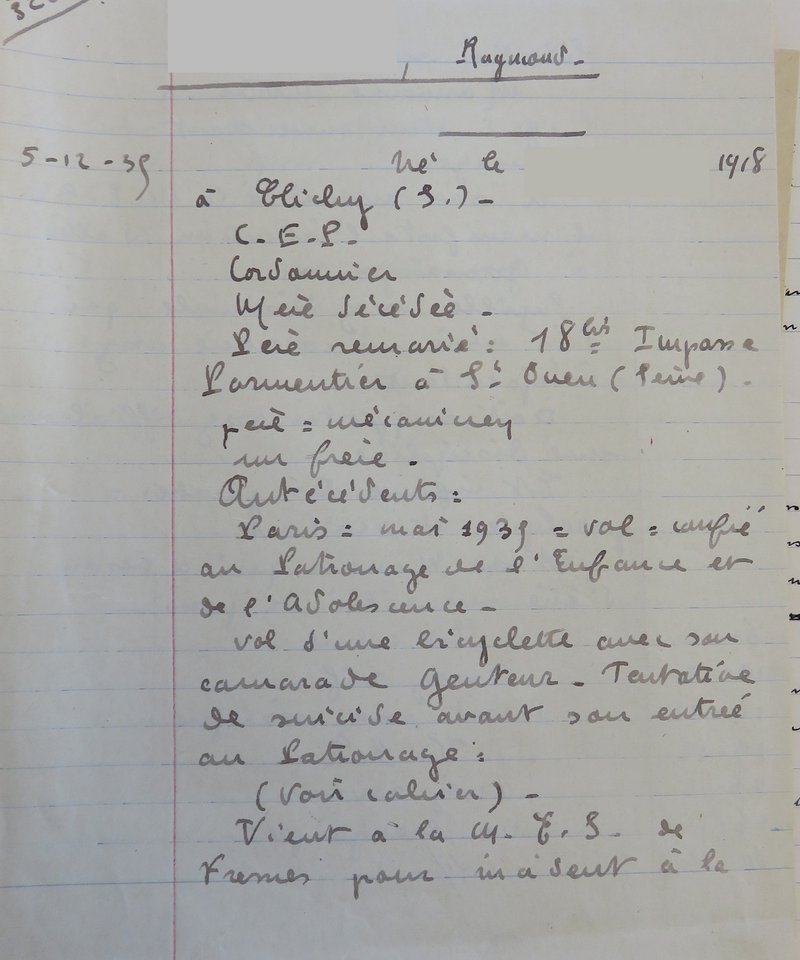 , Raymond -
5-12-39 Né le 1918
à Clichy (S.) -
C.E.P.
Cordonnier
Mère décédée -
Père remarié : 18 bis Impasse
Parmentier à St Ouen (Seine) .
père = mécanicien
un frère .
Antécédents :
Paris = mai 1939 = vol = confié
au Patronage de l'Enfance et
de l'Adolescence -
Vol d'une bicyclette avec son
camarade Genteur - Tentative
de suicide avant son entrée
au Patronage :
(voir cahier) -
Vient à la M.E.S. de
Fresnes pour incident à la